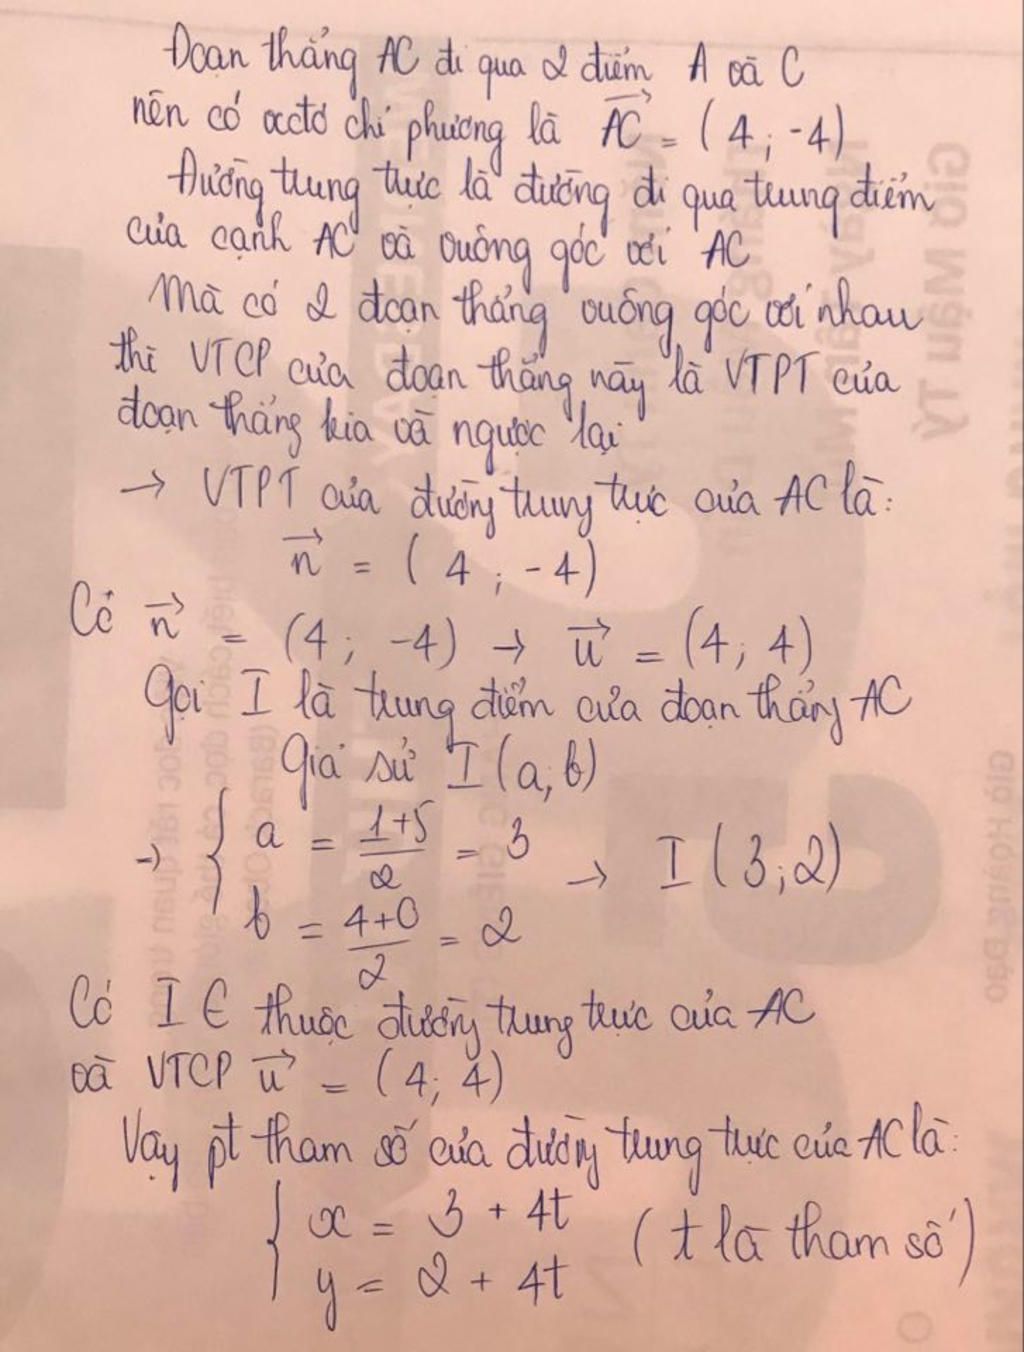 Đoạn thẳng AC đi qua 2 điểm A và C
nên có vectơ chỉ phương là AC = (4; -4)
Đường trung trực là đường đi qua trung điểm
của cạnh AC và vuông góc với AC
Mà có 2 đoạn thẳng vuông góc với nhau
thì VTCP của đoạn thẳng này là VTPT của
đoạn thẳng kia và ngược lại
→ VTPT của đường trung trực của AC là:
n = (4; -4)
Có n = (4; -4) → u = (4; 4)
Gọi I là trung điểm của đoạn thẳng AC
Giả sử I(a; b)
→ { a = (1+5)/2 = 3 → I(3; 2)
b = (4+0)/2 = 2
Có I ∈ thuộc đường trung trực của AC
và VTCP u = (4; 4)
Vậy pt tham số của đường trung trực của AC là:
{ x = 3 + 4t (t là tham số)
y = 2 + 4t